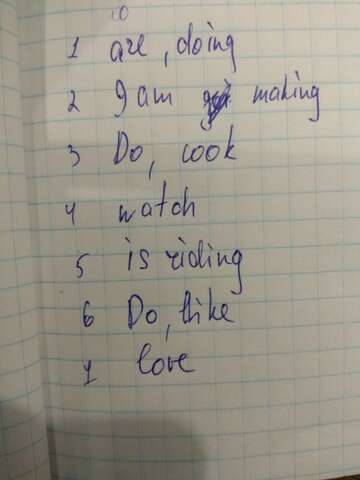 10
1 are, doing
2 I am making
3 Do, cook
4 watch
5 is riding
6 Do, like
7 love